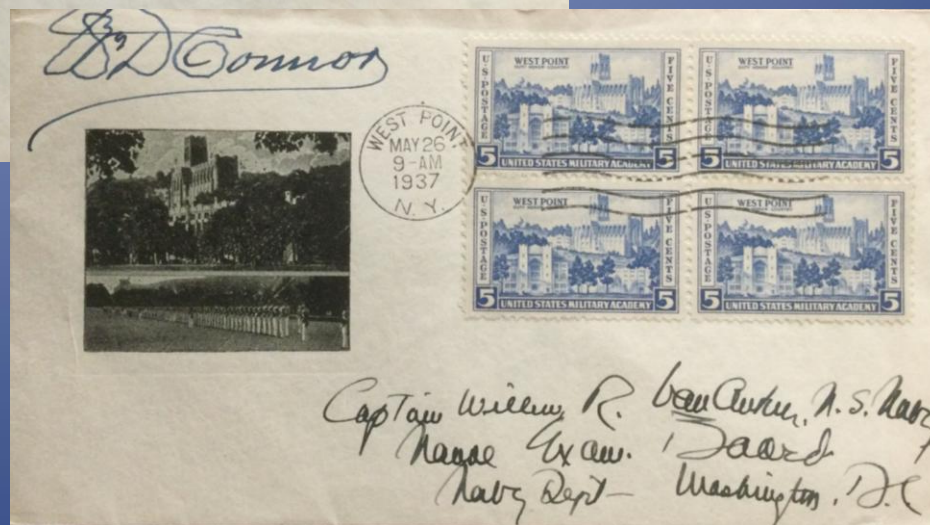 Wm D Connor
WEST POINT
MAY 26
9-AM
1937
N.Y.
U.S. POSTAGE
WEST POINT
FIVE CENTS
5 UNITED STATES MILITARY ACADEMY 5
U.S. POSTAGE
WEST POINT
FIVE CENTS
5 UNITED STATES MILITARY ACADEMY 5
U.S. POSTAGE
WEST POINT
FIVE CENTS
5 UNITED STATES MILITARY ACADEMY 5
U.S. POSTAGE
WEST POINT
FIVE CENTS
5 UNITED STATES MILITARY ACADEMY 5
Captain R. U.S. Navy
Exam. Board
Navy Dept - Washington, D.C